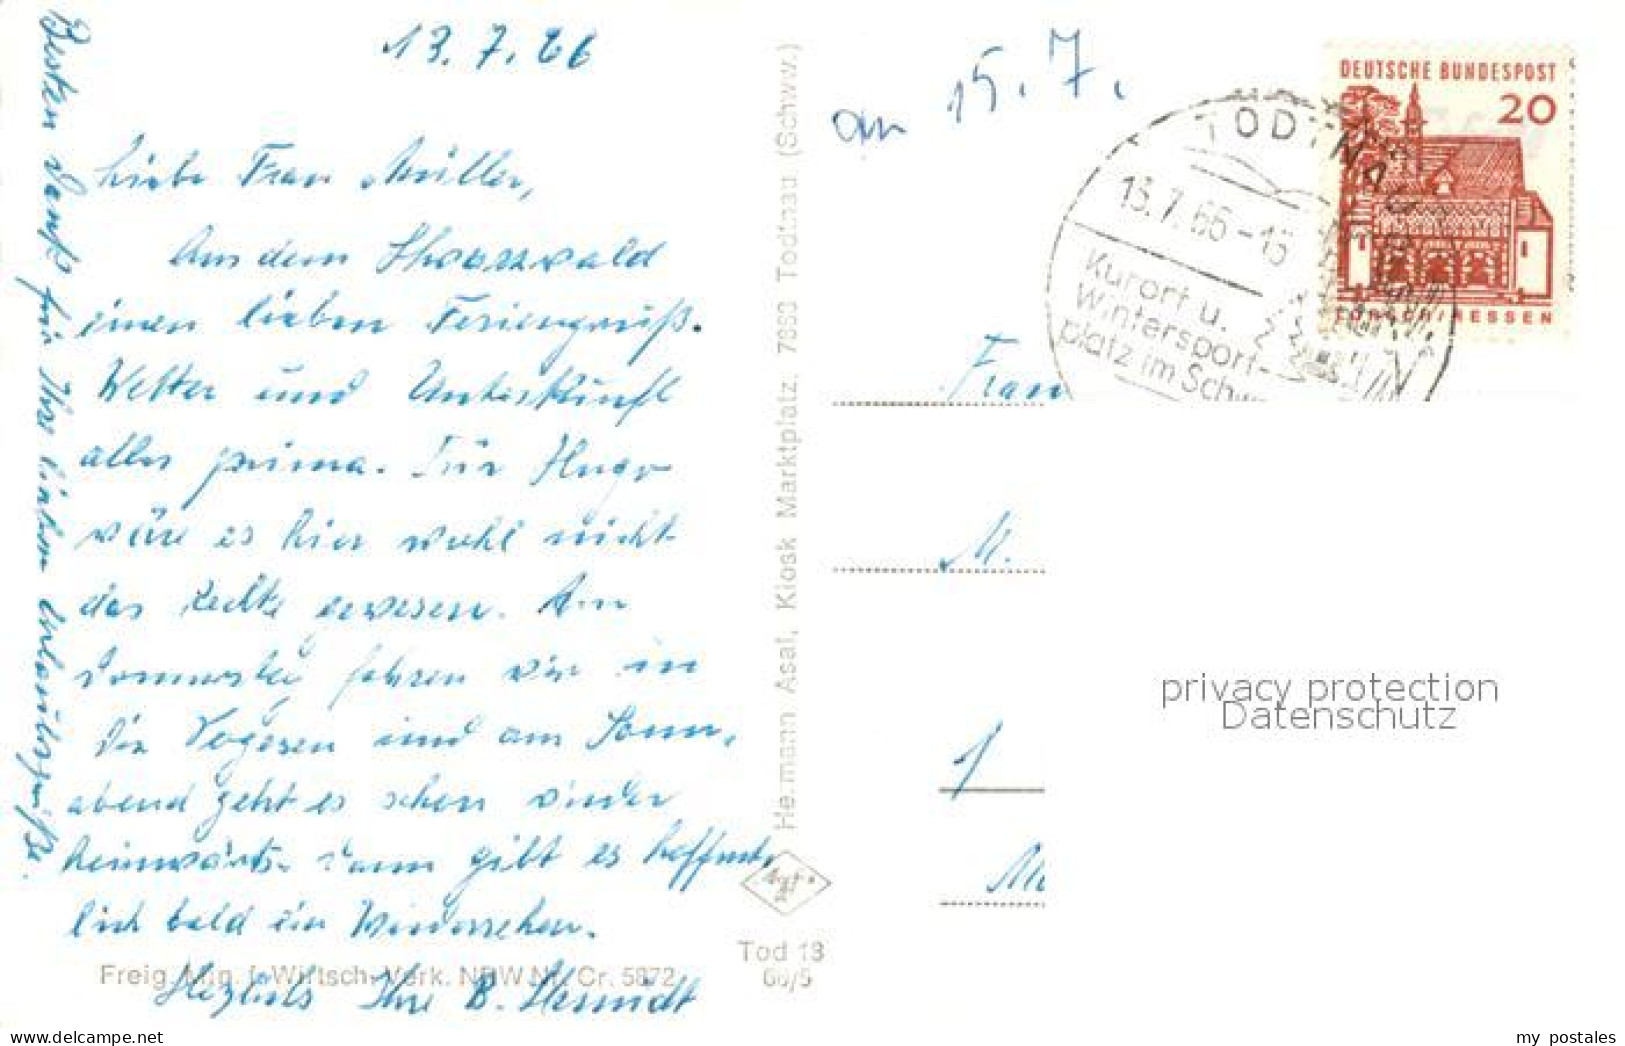 13.7.66
Liebe Frau Müller,
Aus dem Schwarzwald
einen lieben Feriengruß.
Wetter und Unterkunft
alles prima. Für Hugo
wäre es hier wohl nicht
das Rechte gewesen. Am
Donnerstag fahren wir in
die Vogesen und am Sonn-
abend geht es schon wieder
heimwärts. Dann gibt es hoffent-
lich bald ein Wiedersehen.
Herzlichst Ihre B.
Besten Dank für Ihre lieben Urlaubsgrüße.
Freig. Min. f. Wirtsch. Verk. NRW Nr. Cr. 5872
Hermann Asal, Kiosk Marktplatz, 7868 Todtnau (Schww.)
Tod 13
66/5
an 15.7.
TODTNAU
13.7.66-15
Kurort u.
Wintersport-
platz im Schw
DEUTSCHE BUNDESPOST
20
LORSCH/HESSEN
Frau
M.
1
privacy protection
Datenschutz
my postales